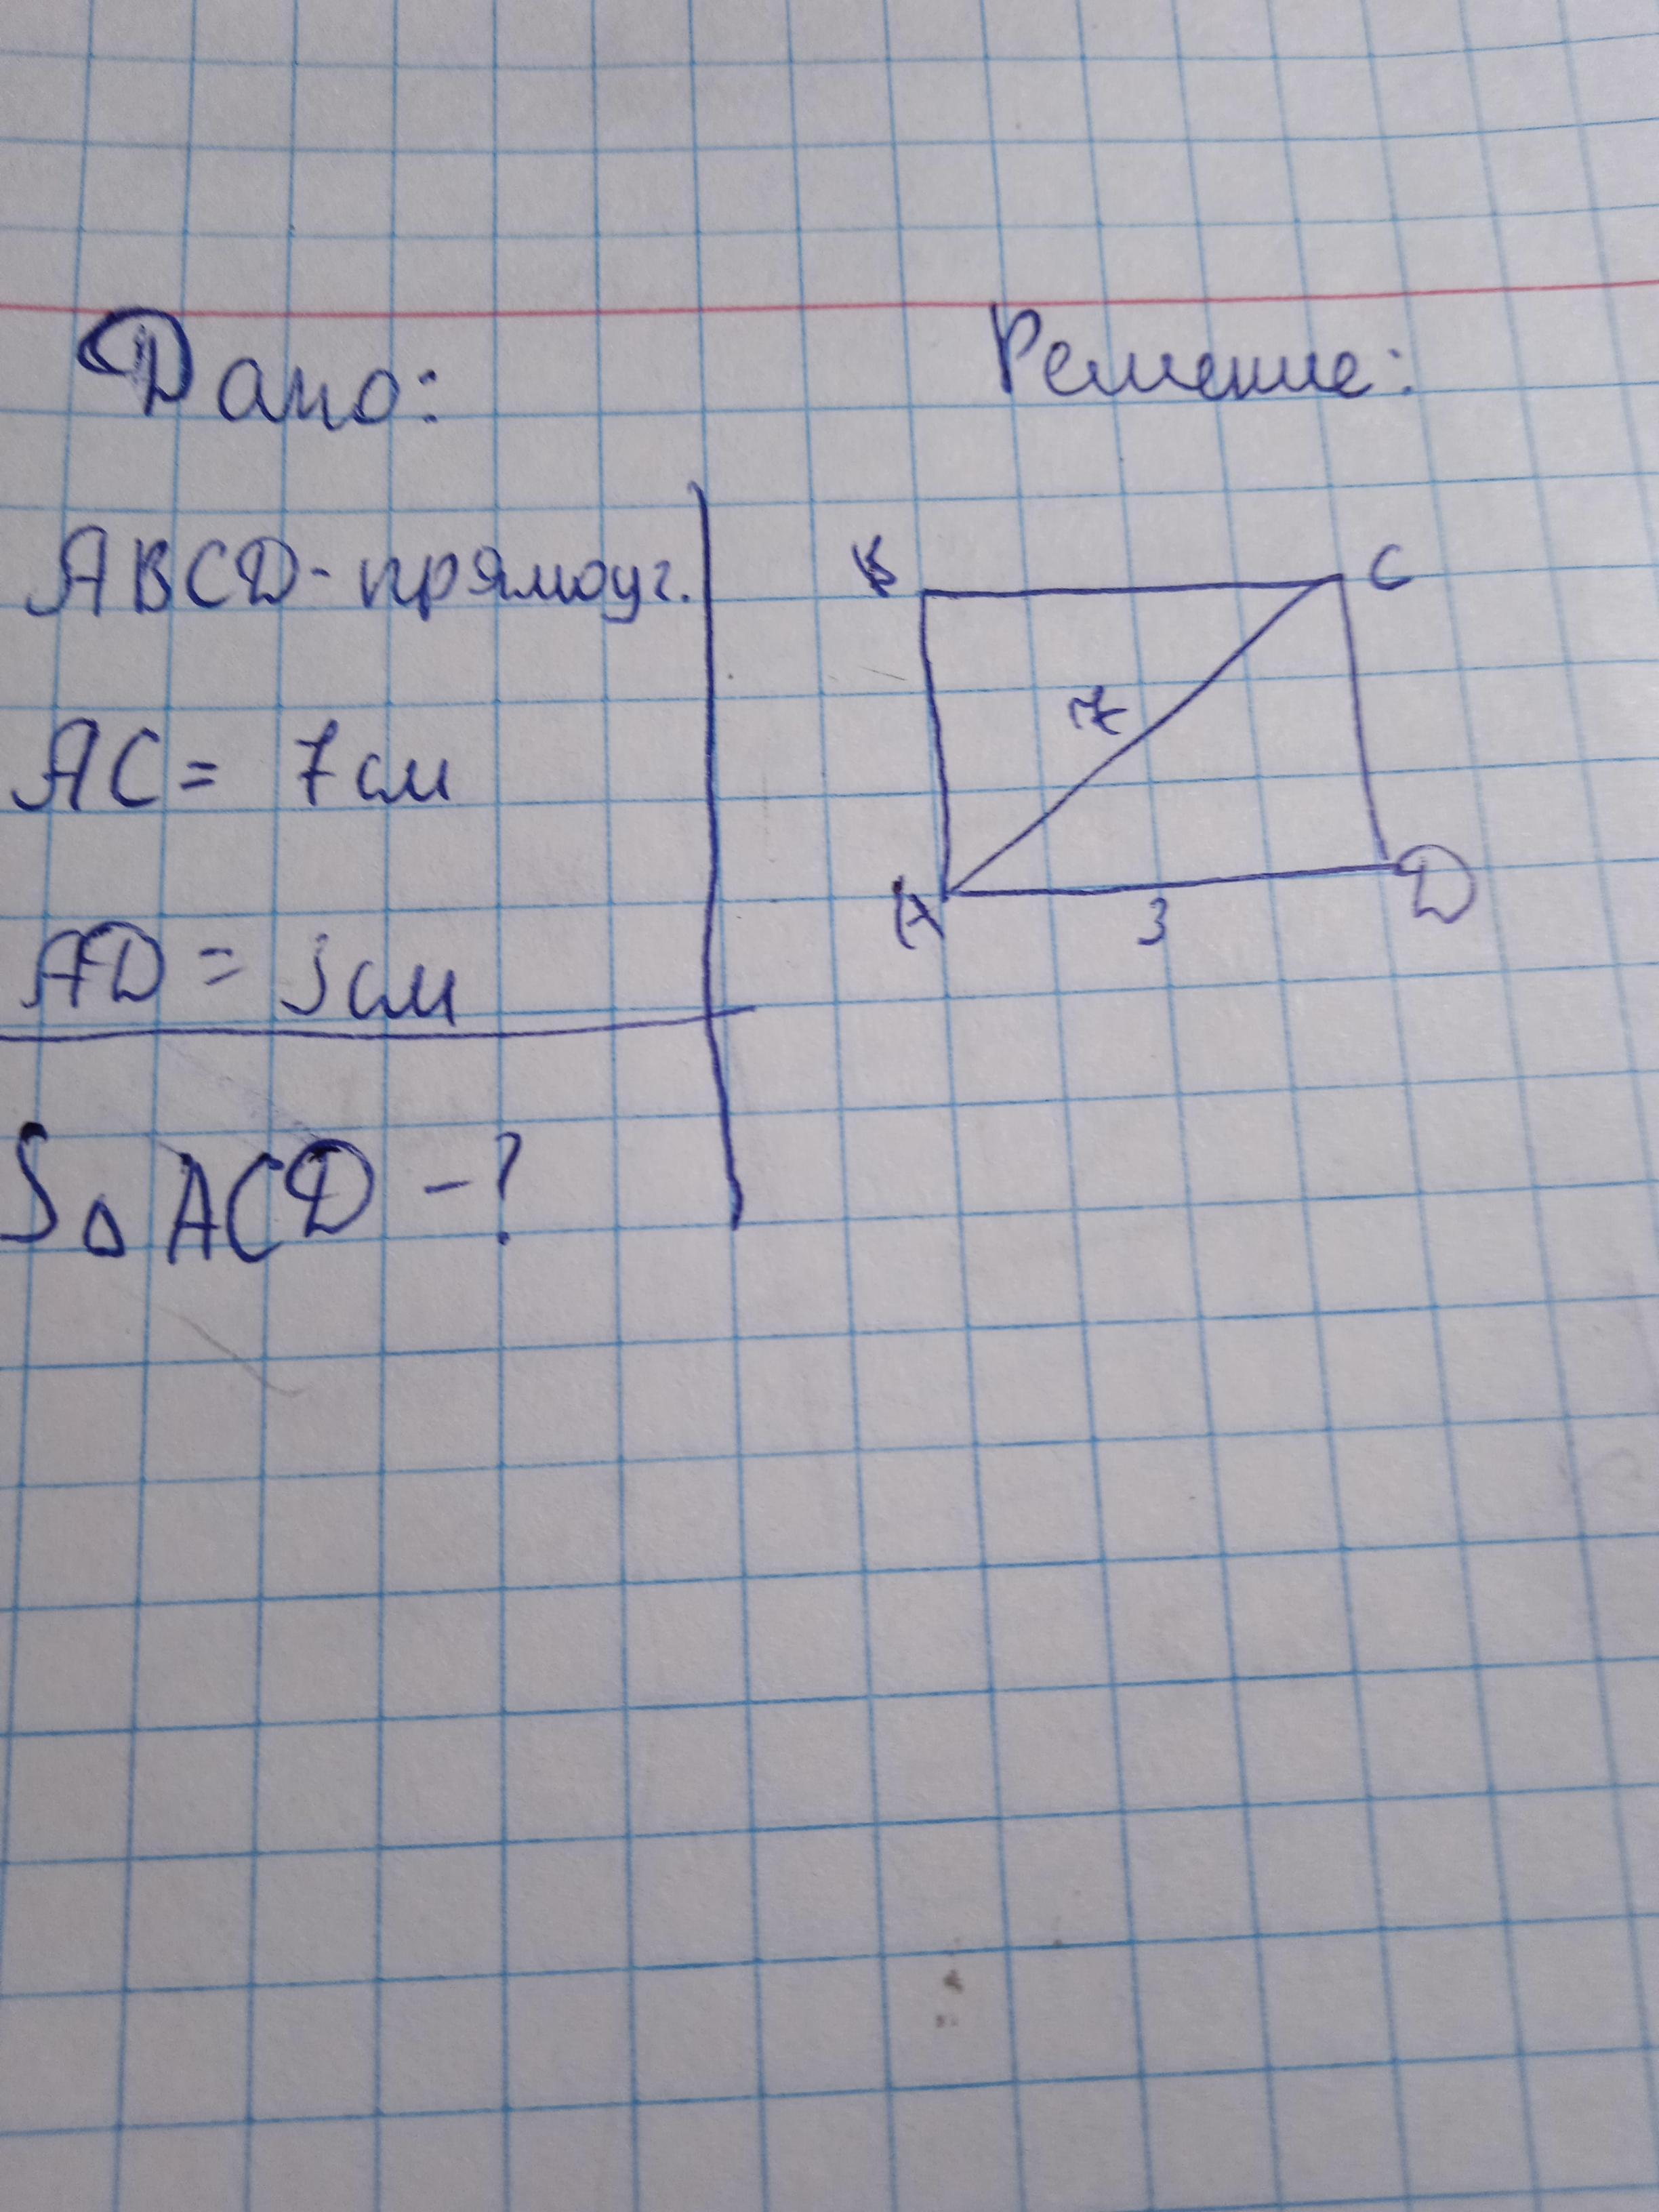 Дано:
ABCD-прямоуг.
AC = 7см
AD = 3см
S△ ACD - ?
Решение:
B
C
7
A
3
D